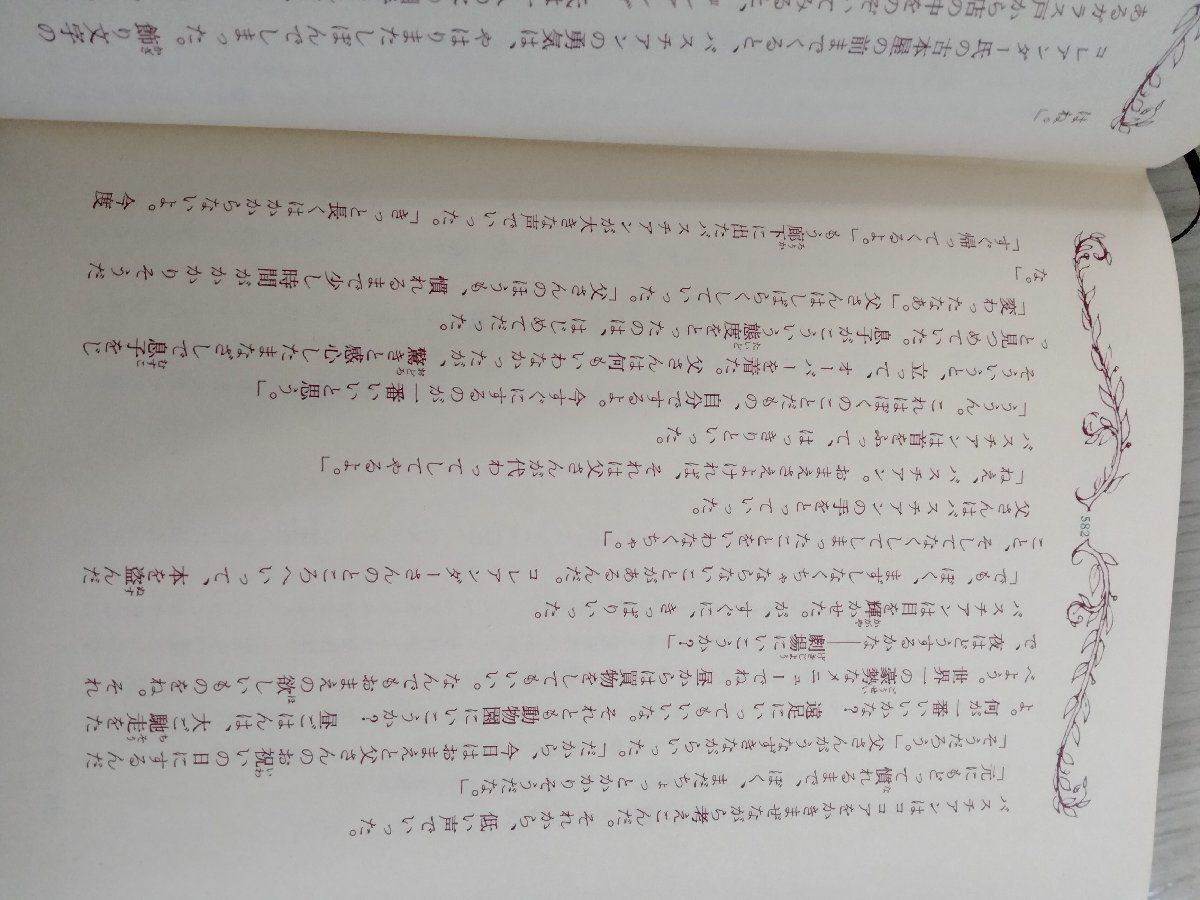 バスチアンはココアをかきまぜながら考えこんだ。それから、低い声でいった。
「元にもどって慣れるまで、ぼく、まだちょっとかかりそうだな。」
「そうだろう。」父さんがうなずきながらいった。「だから、今日はおまえと父さんのお祝いの日にするんだ
よ。何が一番いいかな？　遠足にいってもいいな。それとも動物園にいこうか？　昼ごはんは、大ご馳走をた
べよう。世界一の豪勢なメニューでね。昼からは買物をしてもいい。なんでもおまえの欲しいものをね。それ
で、夜はどうするかな――劇場にいこうか？」
バスチアンは目を輝かせた。が、すぐに、きっぱりいった。
「でも、ぼく、まずしなくちゃならないことがあるんだ。コレアンダーさんのところへいって、本を盗んだ
こと、そしてなくしてしまったことをいわなくちゃ。」
父さんはバスチアンの手をとっていった。
「ねえ、バスチアン。おまえさえよければ、それは父さんが代わってしてやるよ。」
バスチアンは首をふって、はっきりといった。
「ううん。これはぼくのことだもの、自分でするよ。今すぐにするのが一番いいと思う。」
そういうと、立って、オーバーを着た。父さんは何もいわなかったが、驚きと感心したまなざしで息子をじ
っと見つめていた。息子がこういう態度をとったのは、はじめてだった。
「変わったなあ。」父さんはしばらくしていった。「父さんのほうも、慣れるまで少し時間がかかりそうだ
な。」
「すぐ帰ってくるよ。」もう廊下に出たバスチアンが大きな声でいった。「きっと長くはかからないよ。今度
582
はね。」
コレアンダー氏の古本屋の前までくると、バスチアンの勇気は、やはりまたしぼんでしまった。飾り文字の
あるガラス戸から店の中をのぞいてみると、